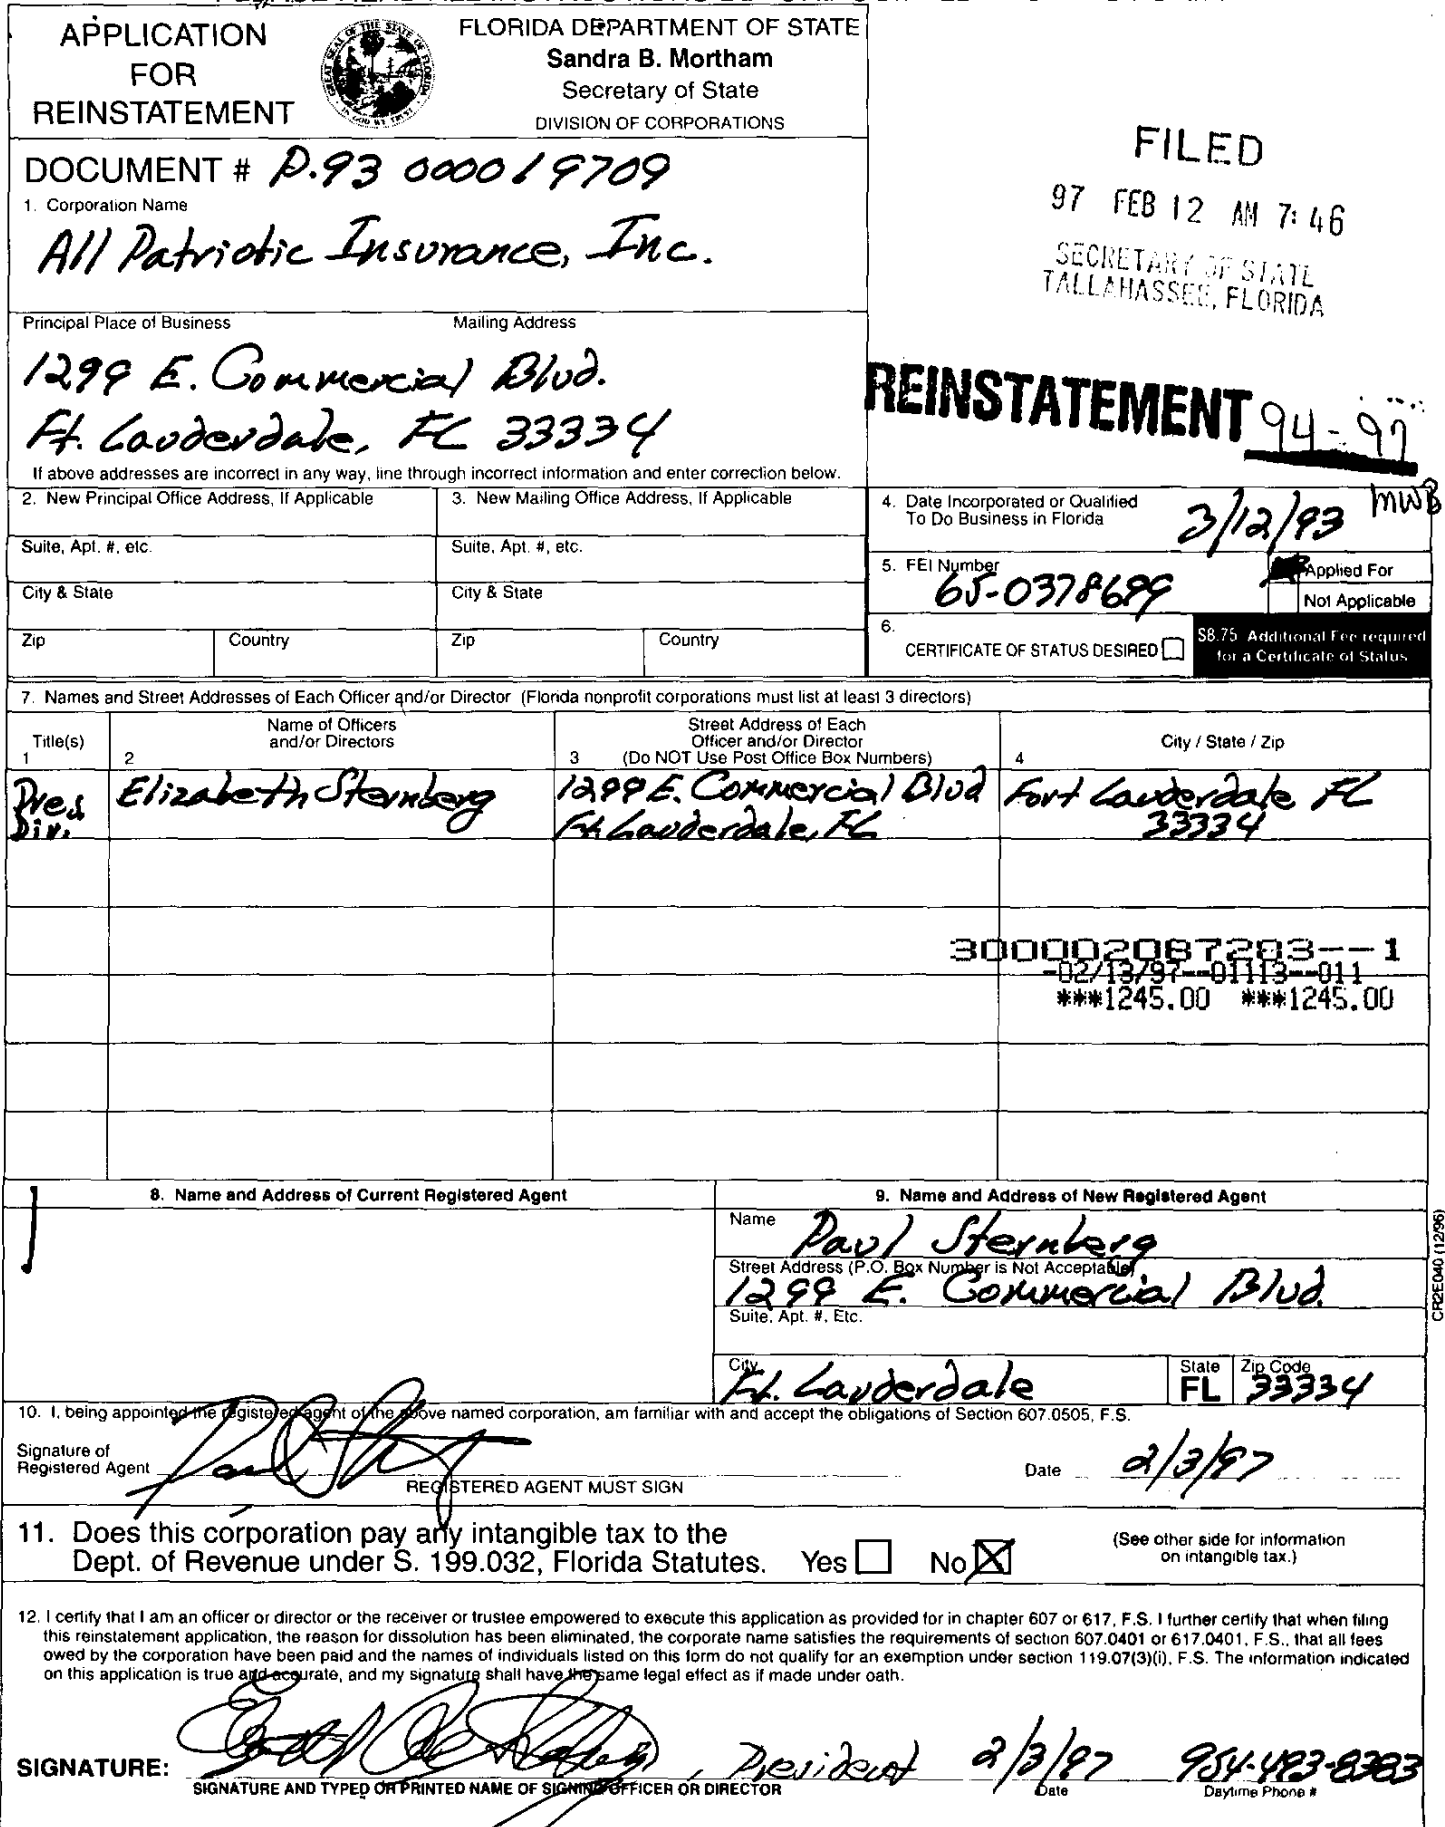 APPLICATION
FOR
REINSTATEMENT
GREAT SEAL OF THE STATE OF FLORIDA
IN GOD WE TRUST
FLORIDA DEPARTMENT OF STATE
Sandra B. Mortham
Secretary of State
DIVISION OF CORPORATIONS
FILED
97 FEB 12 AM 7:46
SECRETARY OF STATE
TALLAHASSEE, FLORIDA
DOCUMENT # P.93 000019709
1. Corporation Name
All Patriotic Insurance, Inc.
Principal Place of Business Mailing Address
1299 E. Commercial Blvd.
Ft. Lauderdale, FL 33334
REINSTATEMENT 94-97
MWB
If above addresses are incorrect in any way, line through incorrect information and enter correction below.
2. New Principal Office Address, If Applicable
3. New Mailing Office Address, If Applicable
Suite, Apt. #, etc.
Suite, Apt. #, etc.
City & State
City & State
Zip Country
Zip Country
4. Date Incorporated or Qualified
To Do Business in Florida
3/12/93
5. FEI Number
65-0378699
Applied For
Not Applicable
6.
CERTIFICATE OF STATUS DESIRED
$8.75 Additional Fee required
for a Certificate of Status
7. Names and Street Addresses of Each Officer and/or Director (Florida nonprofit corporations must list at least 3 directors)
Title(s)
1
Name of Officers
and/or Directors
2
Street Address of Each
Officer and/or Director
3 (Do NOT Use Post Office Box Numbers)
City / State / Zip
4
Pres
Dir.
Elizabeth Sternberg
1299 E. Commercial Blvd
Ft. Lauderdale, FL
Fort Lauderdale FL
33334
300002087283--1
-02/13/97--01113--011
***1245.00 ***1245.00
8. Name and Address of Current Registered Agent
9. Name and Address of New Registered Agent
Name
Paul Sternberg
Street Address (P.O. Box Number is Not Acceptable)
1299 E. Commercial Blvd.
Suite, Apt. #, Etc.
City
Ft. Lauderdale
State
FL
Zip Code
33334
CR2E040 (12/96)
10. I, being appointed the registered agent of the above named corporation, am familiar with and accept the obligations of Section 607.0505, F.S.
Signature of
Registered Agent
REGISTERED AGENT MUST SIGN
Date 2/3/97
11. Does this corporation pay any intangible tax to the
Dept. of Revenue under S. 199.032, Florida Statutes. Yes No X
(See other side for information
on intangible tax.)
12. I certify that I am an officer or director or the receiver or trustee empowered to execute this application as provided for in chapter 607 or 617, F.S. I further certify that when filing
this reinstatement application, the reason for dissolution has been eliminated, the corporate name satisfies the requirements of section 607.0401 or 617.0401, F.S., that all fees
owed by the corporation have been paid and the names of individuals listed on this form do not qualify for an exemption under section 119.07(3)(i), F.S. The information indicated
on this application is true and accurate, and my signature shall have the same legal effect as if made under oath.
SIGNATURE: , President 2/3/97 954-493-8383
SIGNATURE AND TYPED OR PRINTED NAME OF SIGNING OFFICER OR DIRECTOR Date Daytime Phone #